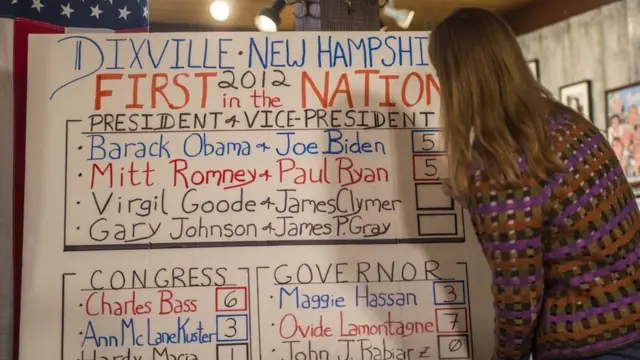 DIXVILLE · NEW HAMPSHIR
FIRST 2012 in the NATION
PRESIDENT & VICE-PRESIDENT
· Barack Obama & Joe Biden 5
· Mitt Romney & Paul Ryan 5
· Virgil Goode & James Clymer
· Gary Johnson & James P. Gray
CONGRESS
· Charles Bass 6
· Ann McLane Kuster 3
· Hardy Macia 1
GOVERNOR
· Maggie Hassan 3
· Ovide Lamontagne 7
· John J. Babiarz 0